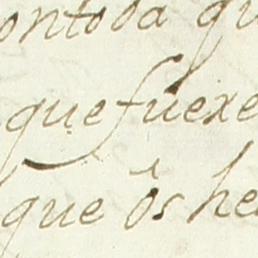 con toda qu
que fuere
que os he